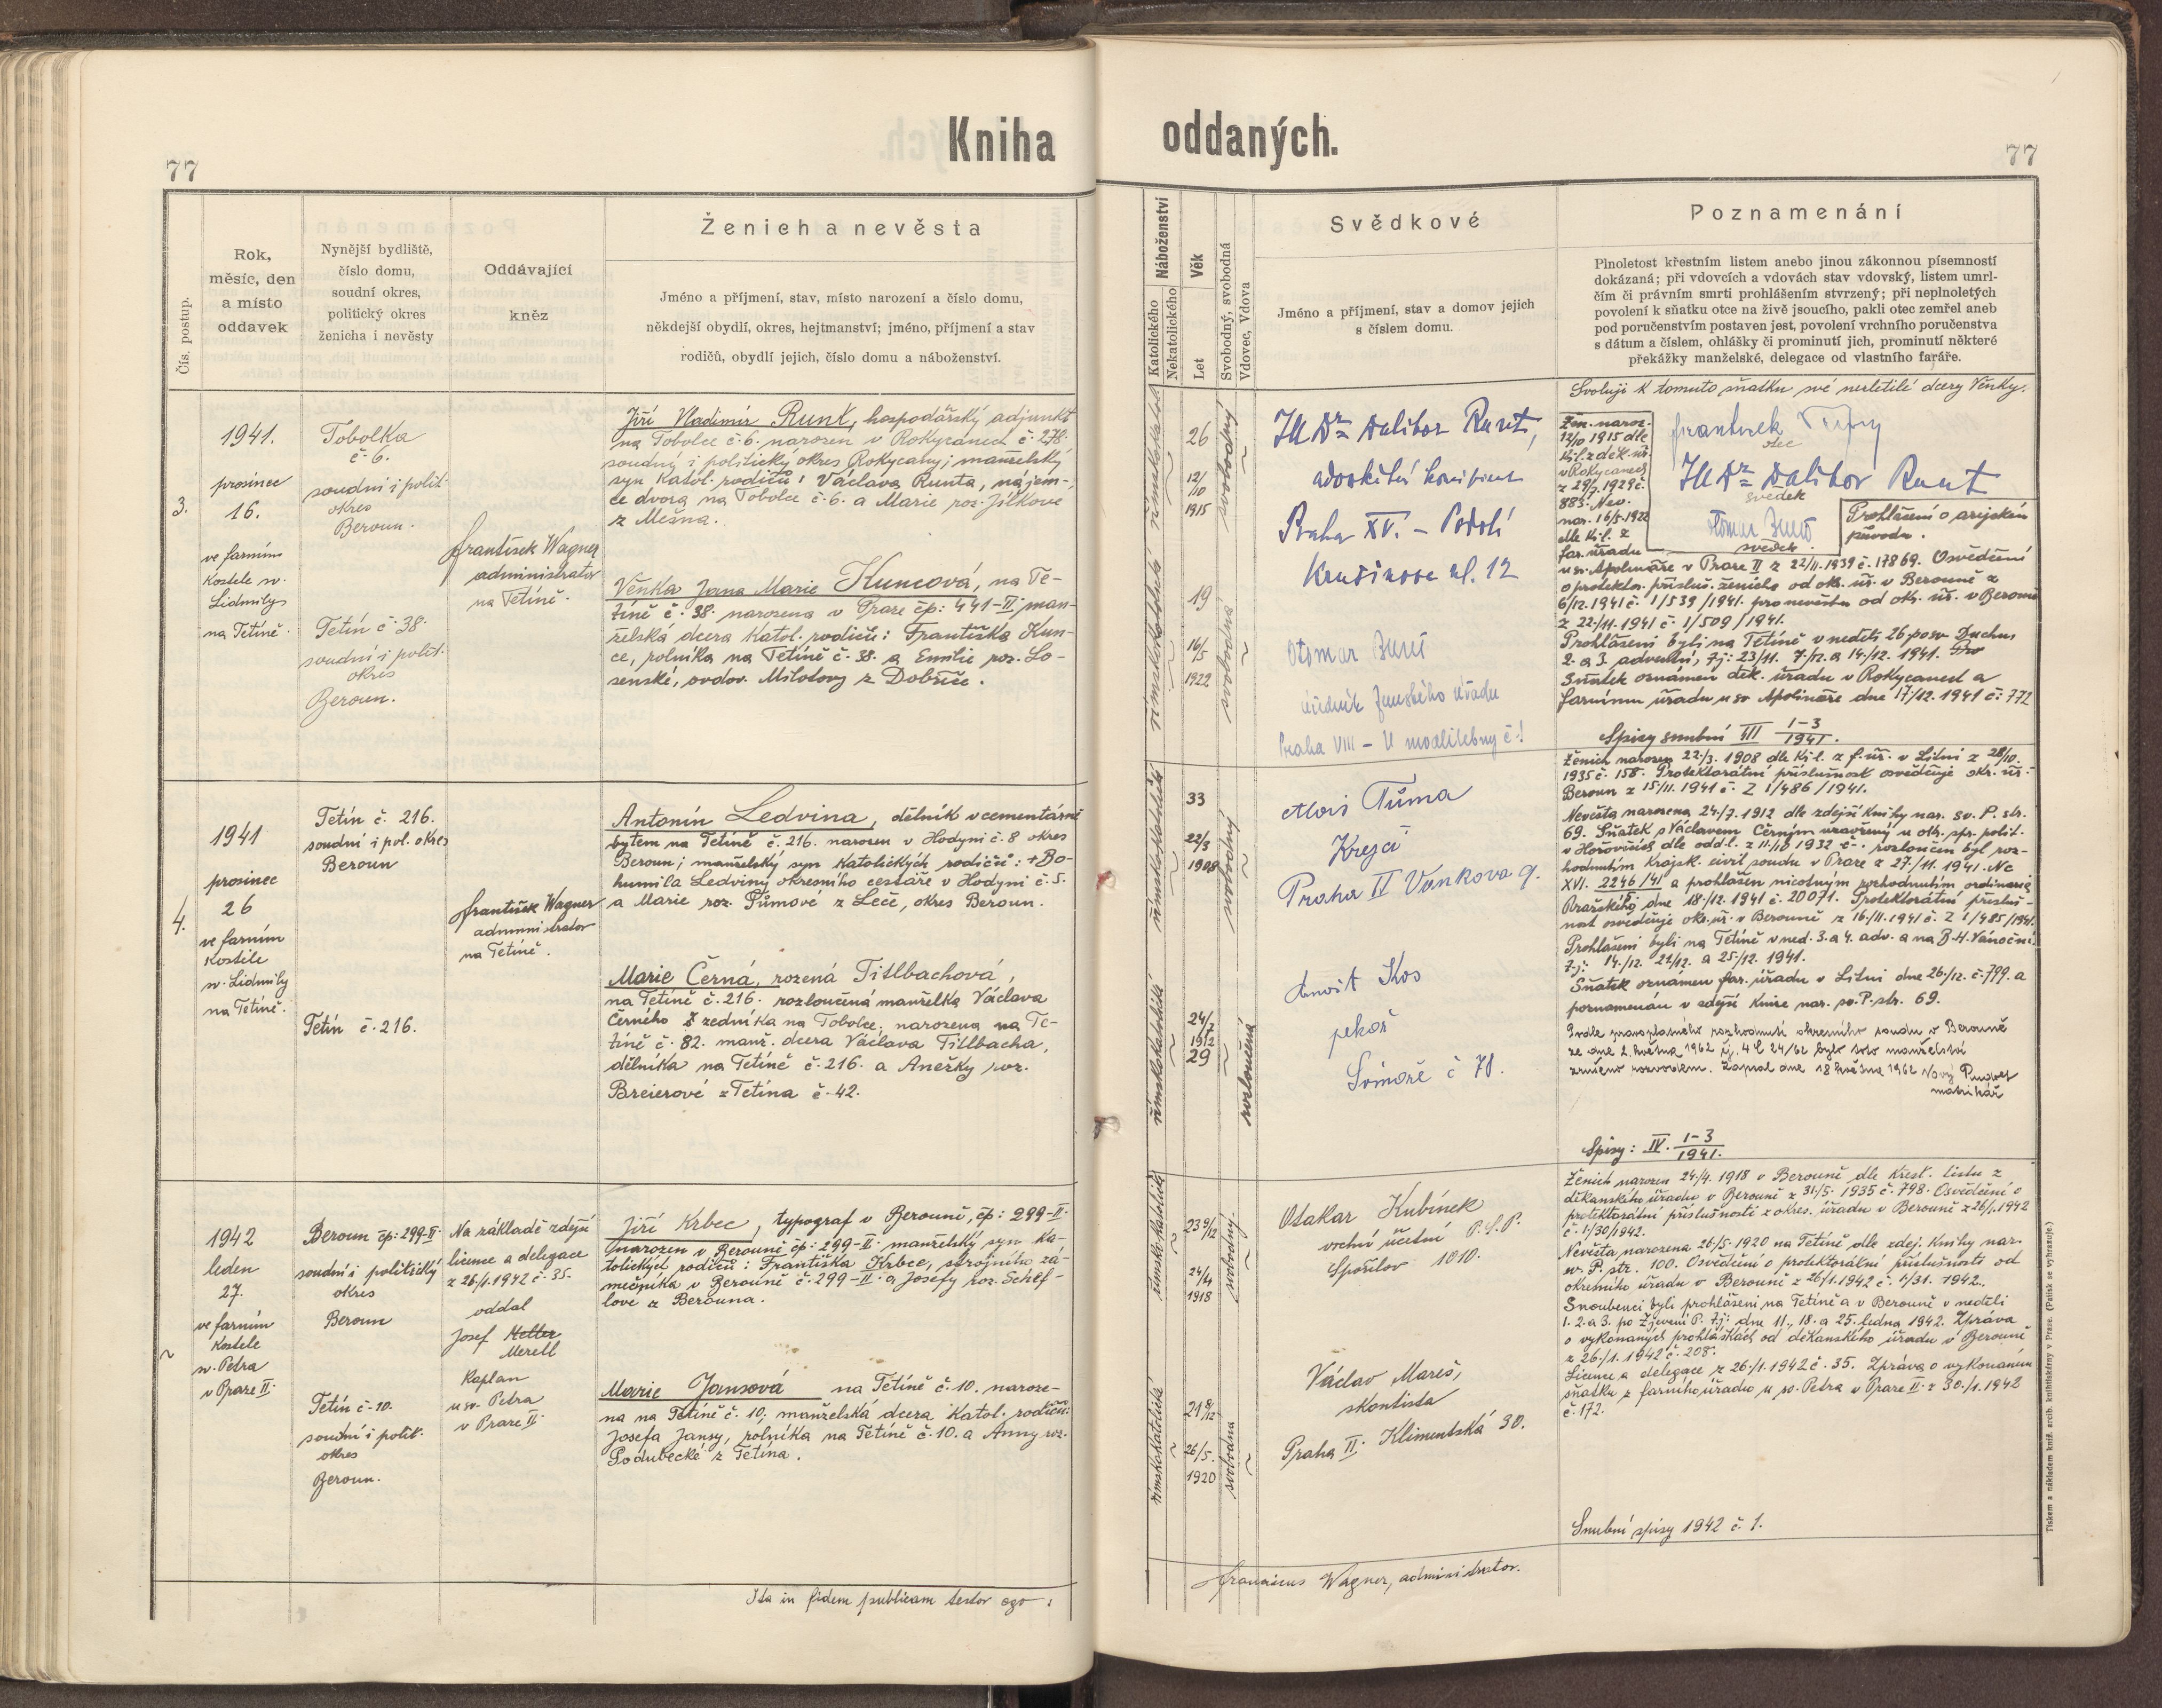 Kniha oddaných.
77
77
Čís. postup.
Rok,
měsíc, den
a místo
oddavek
Nynější bydliště,
číslo domu,
soudní okres,
politický okres
ženicha i nevěsty
Oddávající
kněz
Ženich a nevěsta
Jméno a příjmení, stav, místo narození a číslo domu,
někdejší obydlí, okres, hejtmanství; jméno, příjmení a stav
rodičů, obydlí jejich, číslo domu a náboženství.
Náboženství
Katolického
Nekatolického
Věk
Let
Svobodný, svobodná
Vdovec, Vdova
Svědkové
Jméno a příjmení, stav a domov jejich
s číslem domu.
Poznamenání
Plnoletost křestním listem anebo jinou zákonnou písemností
dokázaná; při vdovcích a vdovách stav vdovský, listem umrl-
čím či právním smrti prohlášením stvrzený; při neplnoletých
povolení k sňatku otce na živě jsoucího, pakli otec zemřel aneb
pod poručenstvím postaven jest, povolení vrchního poručenstva
s dátum a číslem, ohlášky či prominutí jich, prominutí některé
překážky manželské, delegace od vlastního faráře.
3.
1941.
prosinec
16.
ve farním
kostele sv.
Lidmily
na Tetíně.
Tobolka
č. 6.
soudní i polit.
okres
Beroun.
Tetín č. 38.
soudní i polit.
okres
Beroun.
František Wagner
administrator
na Tetíně.
Jiří Vladimír Runt, hospodářský adjunkt
na Tobolce č. 6. narozen v Rokycanech č. 278.
soudný i politický okres Rokycany; manželský
syn katol. rodičů: Václava Runta, nájem-
ce dvora na Tobolce č. 6. a Marie roz. Jílkove
z Mešna.
Věnka Jana Marie Kuncová, na Te-
tíně č. 38. narozena v Praze čp: 441-II. man-
želská dcera katol. rodičů: Františka Kun-
ce, rolníka na Tetíně č. 38. a Emilie roz. Lo-
senské, ovdov. Milotovy z Dobříče.
římskokatolík
26
12/10
1915
svobodný
římskokatolická
19
16/5
1922
svobodná
JUDr Dalibor Runt,
advokátní koncipient
Praha XV. - Podolí
Krušinova ul. 12
Otomar
úředník Zemského úřadu
Praha VIII -
Svoluji k tomuto sňatku své nezletilé dcery Věnky.
Žen. naroz.
12/10 1915 dle
Kř. l. z děk. úř.
v Rokycanech
z 29/7. 1929 č.
883. Nev.
nar. 16/5 1922
dle kř. l. z
far. úřadu
František
otec
JUDr Dalibor Runt
svědek
Otomar
svědek.
Prohlášení o arijském
původu.
u sv. Apolináře v Praze II z 22/11. 1939 č. 17869. Osvědčení
o protektor. přísluš. ženicha od ok. úř. v Berouně z
6/12. 1941 č. 1/539/1941. pro nevěstu od ok. úř. v Berouně
z 22/11. 1941 č. 1/509/1941.
Prohlášeni byli na Tetíně v neděli 26 po sv. Duchu
2. a 3. adventní, tj: 23/11. 7./12. a 14./12. 1941.
Sňatek oznámen děk. úřadu v Rokycanech a
farnímu úřadu u sv Apolináře dne 17./12. 1941 č: 772
Spisy snubní III 1-3/1941.
4.
1941
prosinec
26
ve farním
kostele
sv. Lidmily
na Tetíně.
Tetín č. 216.
soudní i pol. okres
Beroun
Tetín č. 216.
František Wagner
administrator
na Tetíně.
Antonín Ledvina, dělník v cementárně
bytem na Tetíně č. 216. narozen v Hodyni č. 8 okres
Beroun; manželský syn katolických rodičů: + Bo-
humila Ledviny okresního cestáře v Hodyni č. 5.
a Marie roz. Půmové z Leče, okres Beroun.
Marie Černá, rozená Titlbachová,
na Tetíně č. 216. rozloučená manželka Václava
Černého zedníka na Tobolce; narozena na Te-
tíně č. 82. manž. dcera Václava Titlbacha,
dělníka na Tetíně č. 216. a Anežky roz.
Breierové z Tetína č. 42.
římskokatolík
33
22/3
1908
svobodný
římskokatolická
24/7
1912
29
rozloučená
Alois Tůma
Krejčí
Praha II Vankova 9.
Kos
pekař
Lomaře č 70.
Ženich narozen 22./3. 1908 dle kř. l. z f. úř. v Litni z 28/10.
1935 č. 158. Protektorátní příslušnost osvědčuje okr. úř.
Beroun z 15/11. 1941 č. Z 1/486/1941.
Nevěsta narozena 24/7. 1912 dle zdejší knihy nar. sv. P. str.
69. Sňatek s Václavem Černým uzavřený u ok. spr. polit.
v Hořovicích dle odd. l. z 11/10 1932 č. rozloučen byl roz-
hodnutím Krajsk. civil soudu v Praze z 27./11. 1941. Nc
XVI. 2246/41 a prohlášen nicotným rozhodnutím ordinariá
Pražského dne 18./12. 1941 č. 20071. Protektorátní přísluš-
nost osvědčuje okr. úř. v Berouně z 16/11. 1941 č. Z 1/485/1941.
Prohlášeni byli na Tetíně v ned. 3. a 4. adv. a na B. H. Vánoční
tj: 14./12. 21/12. a 25/12. 1941.
Sňatek oznámen far. úřadu v Litni dne 26./12. č. 799. a
poznamenán v zdejší knize nar. sv. P. str. 69.
Podle pravoplatného rozhodnutí okresního soudu v Berouně
ze dne 2. května 1962 čj. 4 C 24/62 bylo toto manželství
zrušeno rozvodem. Zapsal dne 18 května 1962 Nový
matrikář
Spisy: IV. 1-3/1941.
1942
leden
27.
ve farním
kostele
sv. Petra
v Praze II.
Beroun čp: 299-II.
soudní i politický
okres
Beroun
Tetín č. 10.
soudní i polit.
okres
Beroun.
Na základě zdejší
licence a delegace
z 26/1. 1942 č. 35.
oddal
Josef Heller
Merell
kaplan
u sv. Petra
v Praze II.
Jiří Krbec, typograf v Berouně, čp: 299-II.
narozen v Berouně čp: 299-II. manželský syn ka-
tolických rodičů: Františka Krbce, strojního zá-
mečníka v Berouně č. 299-II. a Josefy roz. Schef-
lové z Berouna.
Marie Jansová na Tetíně č. 10. naroze-
na na Tetíně č. 10. manželská dcera katol. rodičů:
Josefa Jansy, rolníka na Tetíně č. 10. a Anny roz.
Podubecké z Tetína.
římskokatolík
23 9/12
24/4
1918
svobodný
římskokatolická
21 8/12
26/5.
1920
svobodná
Otakar Kubínek
vrchní účetní P.S.P.
Spořilov 1010.
Václav Mareš,
skontista
Praha II. Klimentská 30.
Ženich narozen 24./4. 1918 v Berouně dle křest. listu z
děkanského úřadu v Berouně z 31/5. 1935 č. 798. Osvědčení o
protektorátní příslušnosti z okres. úřadu v Berouně z 26/1. 1942
č. 1/30/1942.
Nevěsta narozena 26/5. 1920 na Tetíně dle zdej. knihy nar.
sv. P. str. 100. Osvědčení o protektorátní příslušnosti od
okresního úřadu v Berouně z 26/1. 1942 č. 1/31. 1942.
Snoubenci byli prohlášeni na Tetíně a v Berouně v neděli
1. 2. a 3. po Zjevení P. tj: dne 11., 18. a 25. ledna 1942. Zpráva
o vykonaných prohláškách od děkanského úřadu v Berouně
z 26./1. 1942 č. 208.
Licence a delegace z 26./1. 1942 č. 35. Zpráva o vykonaném
sňatku z farního úřadu u sv. Petra v Praze II. z 30./1. 1942
č. 172.
Snubní spisy 1942 č. 1.
Ita in fidem publicam testor ego:
Franciscus Wagner, administrator.
Tiskem a nákladem kníž. arcib. knihtiskárny v Praze. (Patisk se vyhrazuje.)